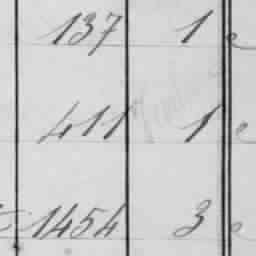 137 1
411 1
1454 3